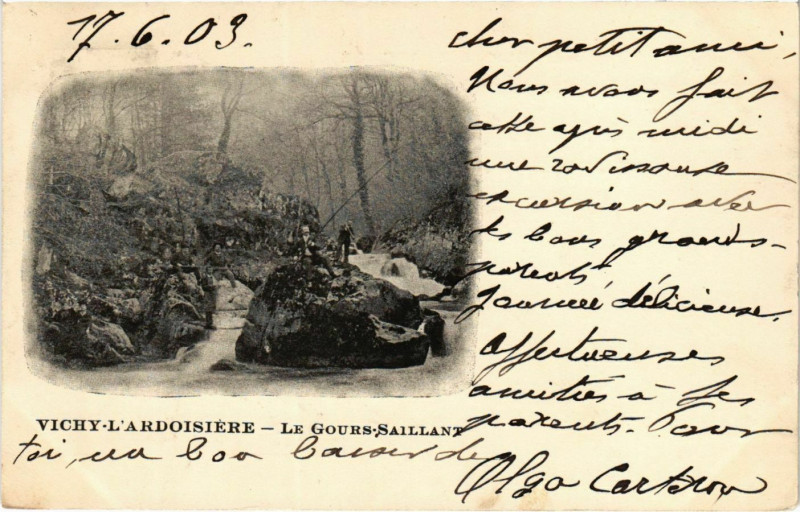 17.6.03.
cher petit ami,
Nous avons fait
cette après midi
une ravissante
excursion avec
les bons grands-
parents
Journée délicieuse.
Affectueuses
amitiés à tes
parents. Pour
VICHY-L'ARDOISIÈRE — LE GOURS-SAILLANT
toi, un bon baiser de
Olga